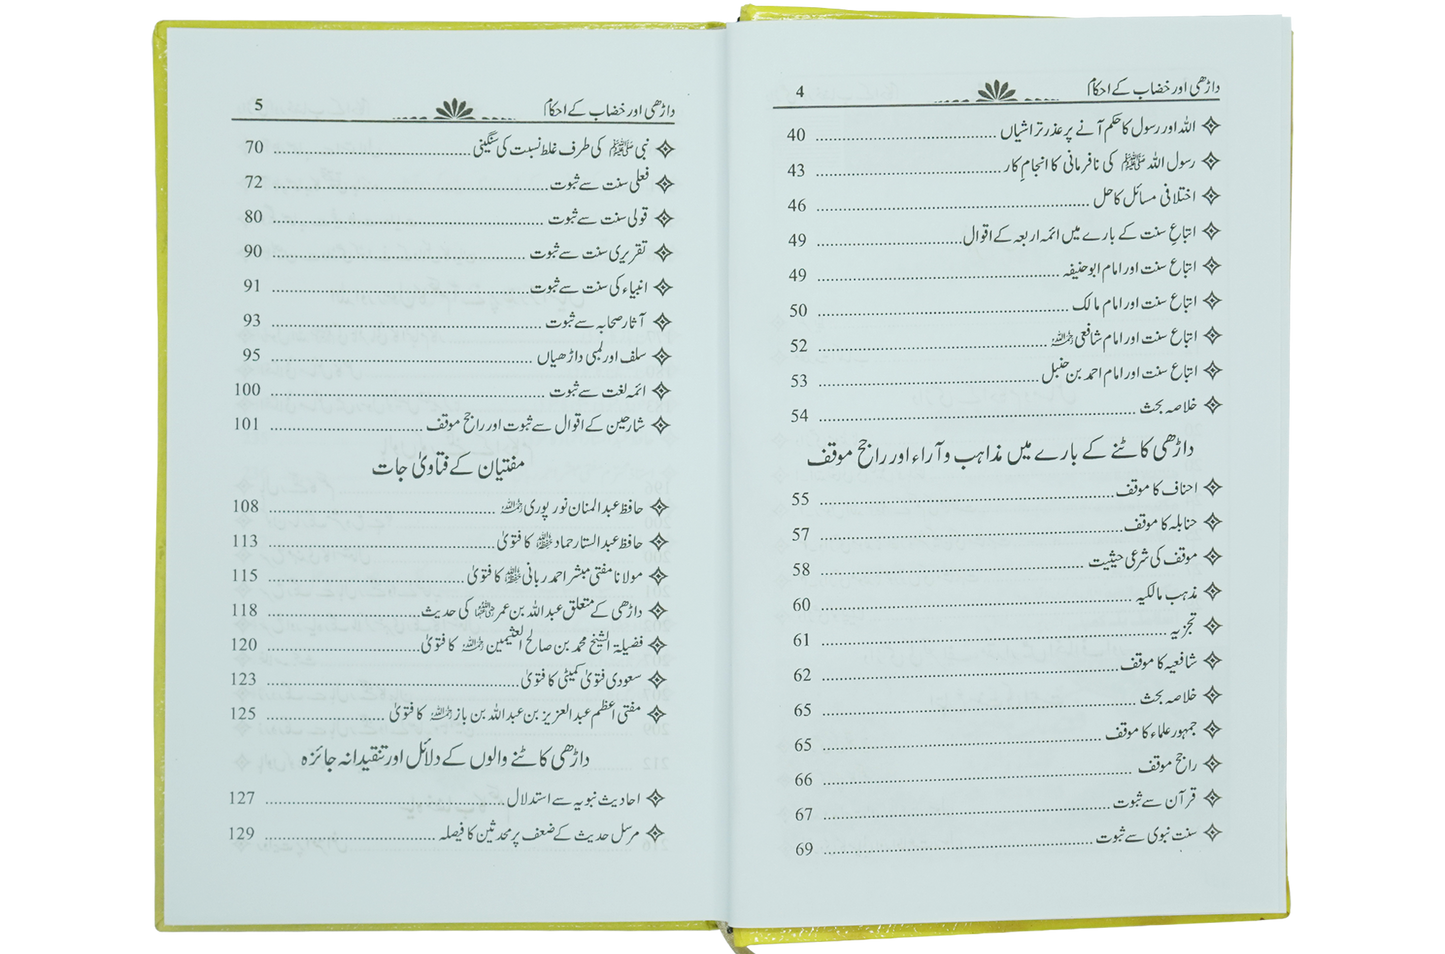 داڑھی اور خضاب کے احکام 4
اللہ اور رسول کا حکم آنے پر عذر تراشیاں 40
رسول اللہ ﷺ کی نافرمانی کا انجامِ کار 43
اختلافی مسائل کا حل 46
اتباعِ سنت کے بارے میں ائمہ اربعہ کے اقوال 49
اتباع سنت اور امام ابو حنیفہ 49
اتباع سنت اور امام مالک 50
اتباع سنت اور امام شافعی رحمہ اللہ 52
اتباع سنت اور امام احمد بن حنبل 53
خلاصہ بحث 54
داڑھی کاٹنے کے بارے میں مذاہب و آراء اور راجح موقف
احناف کا موقف 55
حنابلہ کا موقف 57
موقف کی شرعی حیثیت 58
مذہب مالکیہ 60
تجزیہ 61
شافعیہ کا موقف 62
خلاصہ بحث 65
جمہور علماء کا موقف 65
راجح موقف 66
قرآن سے ثبوت 67
سنت نبوی سے ثبوت 69
داڑھی اور خضاب کے احکام 5
نبی ﷺ کی طرف غلط نسبت کی سنگینی 70
فعلی سنت سے ثبوت 72
قولی سنت سے ثبوت 80
تقریری سنت سے ثبوت 90
انبیاء کی سنت سے ثبوت 91
آثار صحابہ سے ثبوت 93
سلف اور لمبی داڑھیاں 95
ائمہ لغت سے ثبوت 100
شارحین کے اقوال سے ثبوت اور راجح موقف 101
مفتیان کے فتاویٰ جات
حافظ عبد المنان نور پوری رحمہ اللہ 108
حافظ عبد الستار حماد حفظہ اللہ کا فتویٰ 113
مولانا مفتی مبشر احمد ربانی حفظہ اللہ کا فتویٰ 115
داڑھی کے متعلق عبد اللہ بن عمر رضی اللہ عنہما کی حدیث 118
فضیلۃ الشیخ محمد بن صالح العثیمین رحمہ اللہ کا فتویٰ 120
سعودی فتویٰ کمیٹی کا فتویٰ 123
مفتی اعظم عبد العزیز بن عبد اللہ بن باز رحمہ اللہ کا فتویٰ 125
داڑھی کاٹنے والوں کے دلائل اور تنقیدانہ جائزہ
احادیث نبویہ سے استدلال 127
مرسل حدیث کے ضعف پر محدثین کا فیصلہ 129